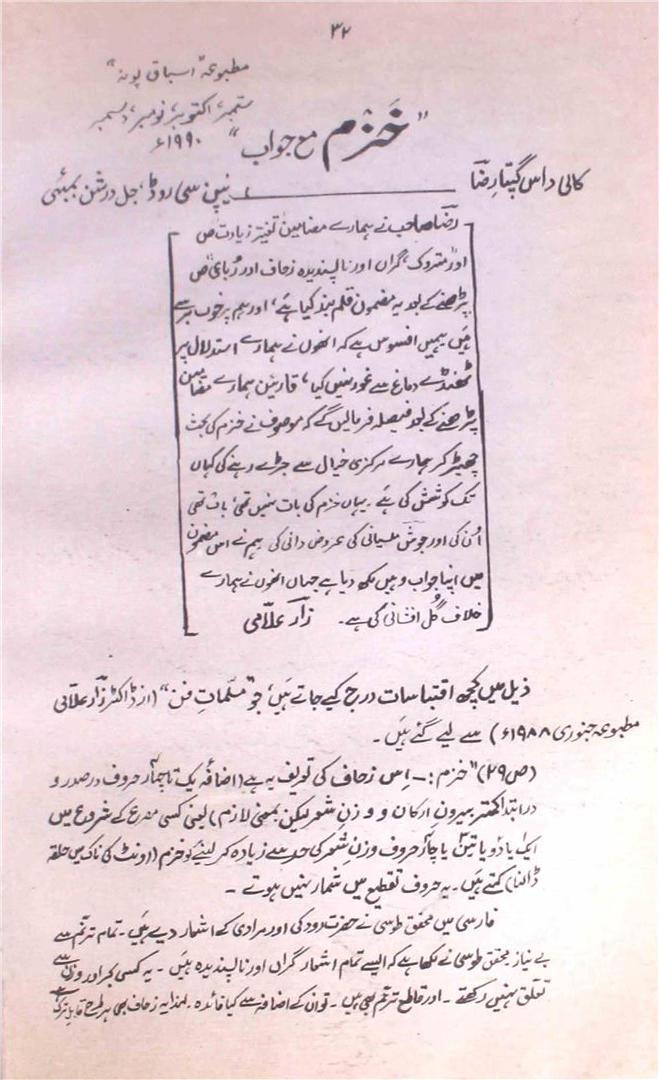 ۳۲
مطبوعہ "اسباق پونہ"
ستمبر، اکتوبر، نومبر، دسمبر
۱۹۹۰ء
"خَزم مع جواب"
کالی داس گپتا رضا
۱۔ نیپن سی روڈ، جل درشن بمبئی
رضا صاحب نے ہمارے مضامین تغیر زیادت ص
اور متروک، گراں اور ناپسندیدہ زحاف اور رُباعی ص
پڑھنے کے بعد یہ مضمون قلم بند کیا ہے، اور ہم پر خوب برسے
ہیں ہمیں افسوس ہے کہ انھوں نے ہمارے استدلال پر
ٹھنڈے دماغ سے غور نہیں کیا، قارئین ہمارے مضامین
پڑھنے کے بعد فیصلہ فرمالیں گے کہ موصوف نے خزم کی بحث
چھیڑ کر ہمارے مرکزی خیال سے جڑے رہنے کی کہاں
تک کوشش کی ہے۔ یہاں خزم کی بات نہیں تھی، بات تھی
اُن کی اور جوش ملسیانی کی عروض دانی کی ہم نے اس مضمون
میں اپنا جواب وہیں لکھ دیا ہے جہاں انھوں نے ہمارے
خلاف گُل افشانی کی ہے۔ زار علامی
ذیل میں کچھ اقتباسات درج کیے جاتے ہیں، جو "مسلّماتِ فن" (از ڈاکٹر زار علامی
مطبوعہ جنوری ۱۹۸۸ء) سے لیے گئے ہیں۔
(ص۲۹) "خزم :۔ اِس زحاف کی تعریف یہ ہے (اضافہ یک تا چہار حروف در صدر و
در ابتدا کمتر بیرونِ ارکان و وزنِ شعر لیکن بمعنی لازم) یعنی کسی مصرع کے شروع میں
ایک یا دو یا تین یا چار حروف وزنِ شعر کی حد سے زیادہ کر لینے کو خزم (اونٹ کی ناک میں حلقہ
ڈالنا) کہتے ہیں۔ یہ حروف تقطیع میں شمار نہیں ہوتے۔
فارسی میں محقق طوسی نے حضرت رودکی اور مرادی کے اشعار دیے ہیں۔ تمام ترنم سے
بے نیاز۔ محقق طوسی نے لکھا ہے کہ ایسے تمام اشعار گراں اور ناپسندیدہ ہیں۔ یہ کسی بحر اور وزن سے
تعلق نہیں رکھتے۔ اور قاطع ترنم بھی ہیں۔ تو ان کے اضافہ سے کیا فائدہ۔ لہٰذا یہ زحاف بھی ہر طرح قابلِ ترک ہے